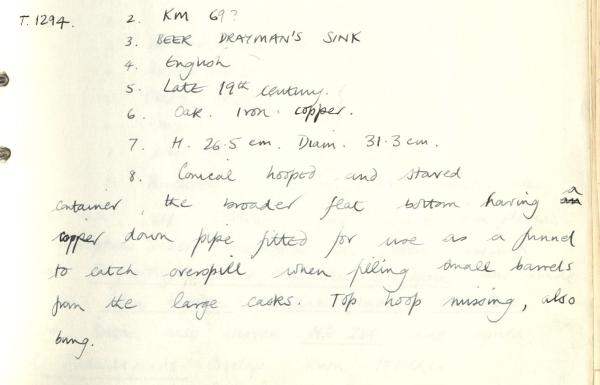 T.1294. 2. KM 69?
3. BEER DRAYMAN'S SINK
4. English
5. Late 19th century.
6. Oak. Iron. copper.
7. H. 26.5 cm. Diam. 31.3 cm.
8. Conical hooped and staved
container, the broader flat bottom having a
copper down pipe fitted for use as a funnel
to catch overspill when filling small barrels
from the large casks. Top hoop missing, also
bung.